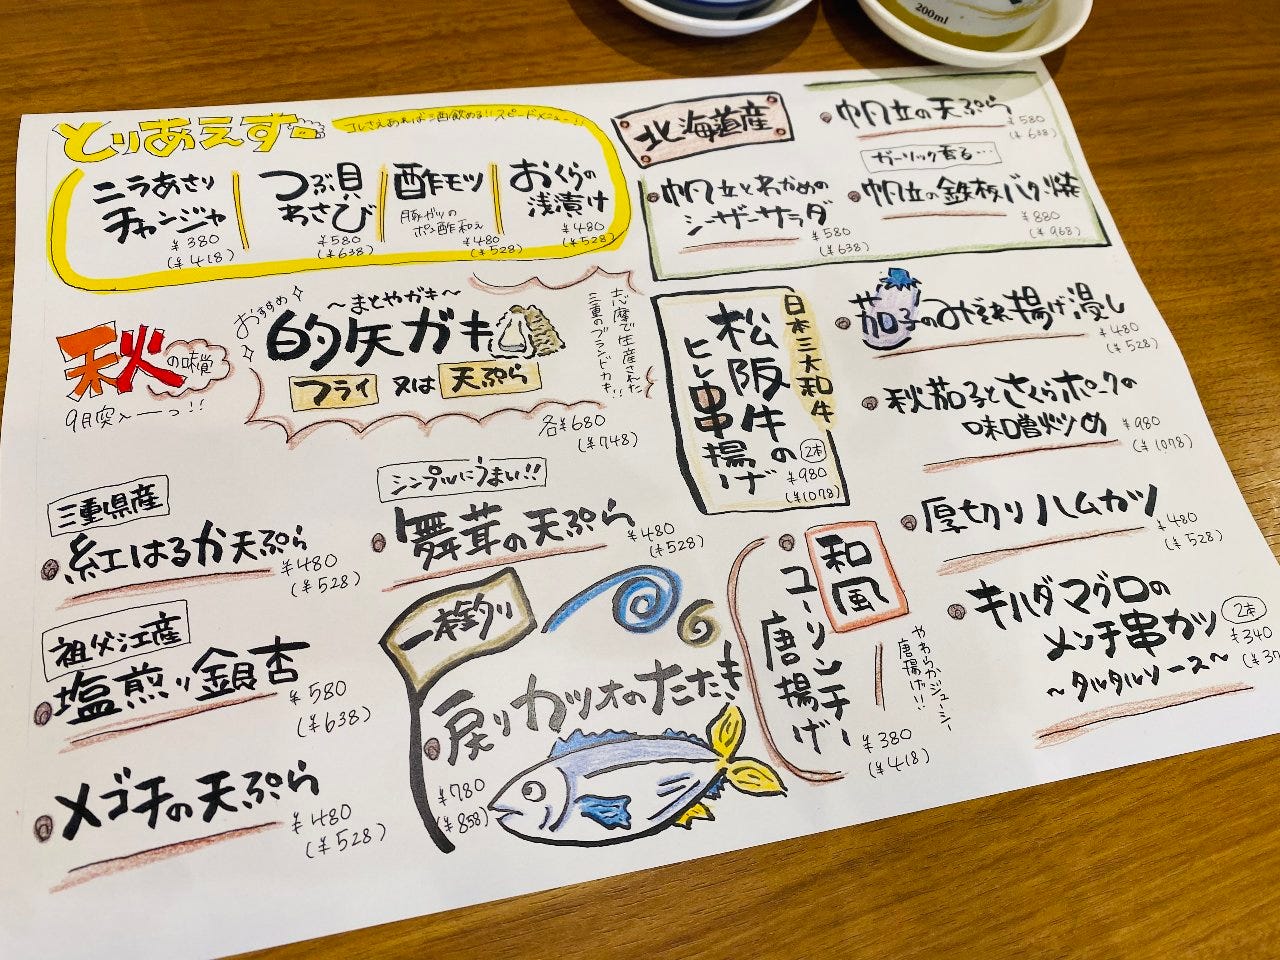 200ml
とりあえずー
コレさえあれば酒飲める!!スピードメニュー!!
ニラあさり
チャンジャ
¥380
(¥418)
つぶ貝
わさび
¥580
(¥638)
酢モツ
豚ガツの
ポン酢和え
¥480
(¥528)
おくらの
浅漬け
¥480
(¥528)
北海道産
帆立の天ぷら
¥580
(¥638)
帆立とわかめの
シーザーサラダ
¥580
(¥638)
ガーリック香る…
帆立の鉄板バター焼
¥880
(¥968)
秋の味覚
9月突入ーっ!!
おすすめ
～まとやガキ～
的矢ガキ
フライ 又は 天ぷら
志摩で生産された
三重のブランドカキ!!
各¥680
(¥748)
日本三大和牛
松阪牛の
ヒレ串揚げ
2本
¥980
(¥1078)
茄子のみぞれ揚げ浸し
¥480
(¥528)
秋茄子とさくらポークの
味噌炒め
¥980
(¥1078)
三重県産
紅はるか天ぷら
¥480
(¥528)
シンプルにうまい!!
舞茸の天ぷら
¥480
(¥528)
厚切りハムカツ
¥480
(¥528)
祖父江産
塩煎り銀杏
¥580
(¥638)
一本釣り
戻りカツオのたたき
¥780
(¥858)
和風
ユーリンチー
唐揚げ
やわらかジューシー
唐揚げ!!
¥380
(¥418)
キハダマグロの
メンチ串カツ
～タルタルソース～
2本
¥340
(¥37
メゴチの天ぷら
¥480
(¥528)